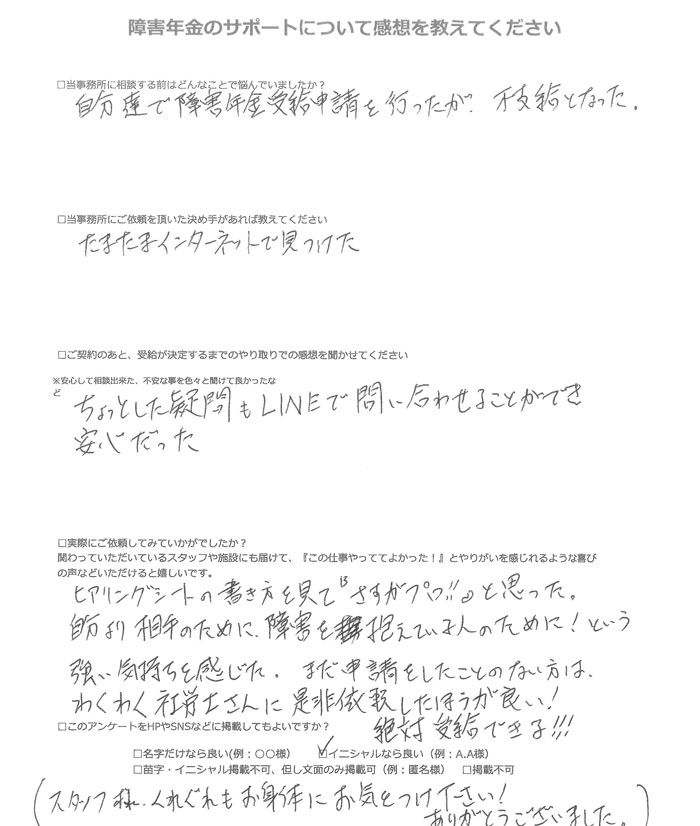 障害年金のサポートについて感想を教えてください
□当事務所に相談する前はどんなことで悩んでいましたか？
自分達で障害年金受給申請を行ったが、不支給となった。
□当事務所にご依頼を頂いた決め手があれば教えてください
たまたまインターネットで見つけた
□ご契約のあと、受給が決定するまでのやり取りでの感想を聞かせてください
※安心して相談出来た、不安な事を色々と聞けて良かったな
ど
ちょっとした疑問もLINEで問い合わせることができ
安心だった
□実際にご依頼してみていかがでしたか？
関わっていただいているスタッフや施設にも届けて、『この仕事やっててよかった！』とやりがいを感じれるような喜び
の声などいただけると嬉しいです。
ヒアリングシートの書き方を見て『さすがプロ!!』と思った。
自分より相手のために、障害を抱えている人のために！という
強い気持ちを感じた。まだ申請をしたことのない方は、
わくわく社労士さんに是非依頼したほうが良い！
絶対受給できる!!!
□このアンケートをHPやSNSなどに掲載してもよいですか？
□名字だけなら良い(例：〇〇様） ☑イニシャルなら良い（例：A.A様）
□苗字・イニシャル掲載不可、但し文面のみ掲載可（例：匿名様） □掲載不可
(スタッフ様、くれぐれもお身体にお気をつけ下さい！
ありがとうございました。)